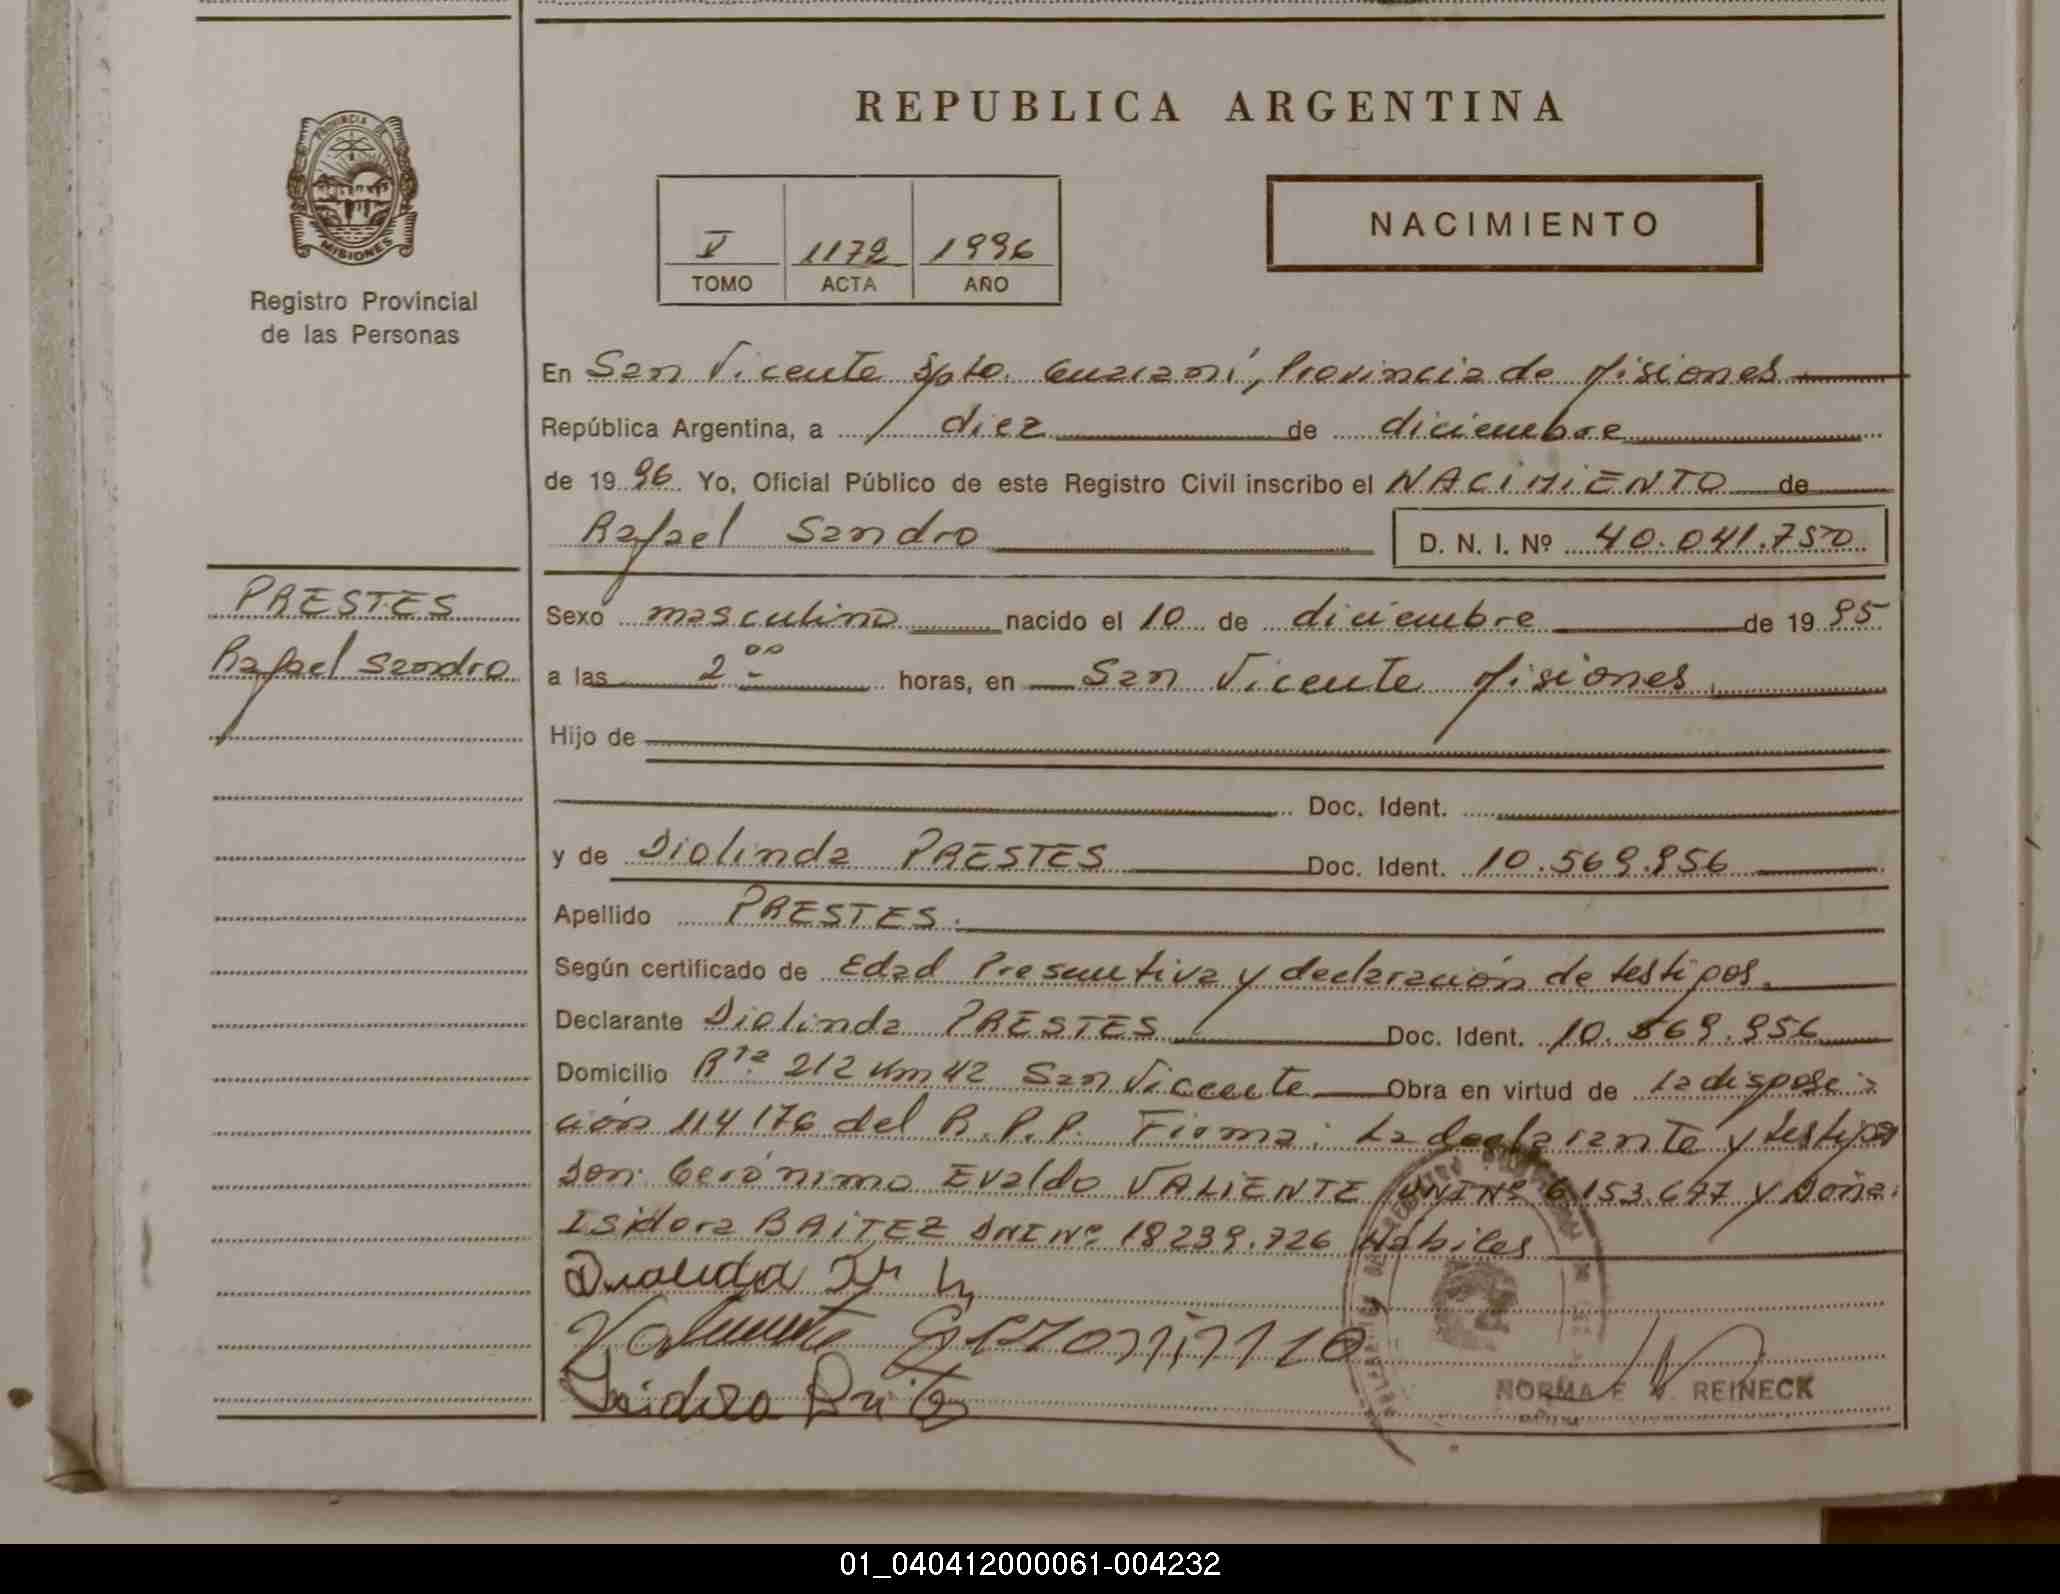 REPUBLICA ARGENTINA
PROVINCIA DE
MISIONES
Registro Provincial
de las Personas
V 1172 1996
TOMO ACTA AÑO
NACIMIENTO
En San Vicente Dpto. Guaraní, Provincia de Misiones
República Argentina, a diez de diciembre
de 1996 Yo, Oficial Público de este Registro Civil inscribo el NACIMIENTO de
Rafael Sandro D. N. I. Nº 40.041.750
PRESTES
Rafael Sandro
Sexo masculino nacido el 10 de diciembre de 1995
a las 2 00 horas, en San Vicente Misiones
Hijo de
Doc. Ident.
y de Diolinda PRESTES Doc. Ident. 10.569.956
Apellido PRESTES.
Según certificado de Edad Presuntiva y declaración de testigos.
Declarante Diolinda PRESTES Doc. Ident. 10.569.956
Domicilio Rta. 212 Km 42 San Vicente Obra en virtud de la disposi-
ción 114 176 del R.P.P. Firma: La declarante y testigos
Don: Gerónimo Evaldo VALIENTE DNI Nº 6.153.677 y Doña:
Isidora BAITEZ DNI Nº 18.239.726 Hábiles
NORMA E REINECK
01_040412000061-004232